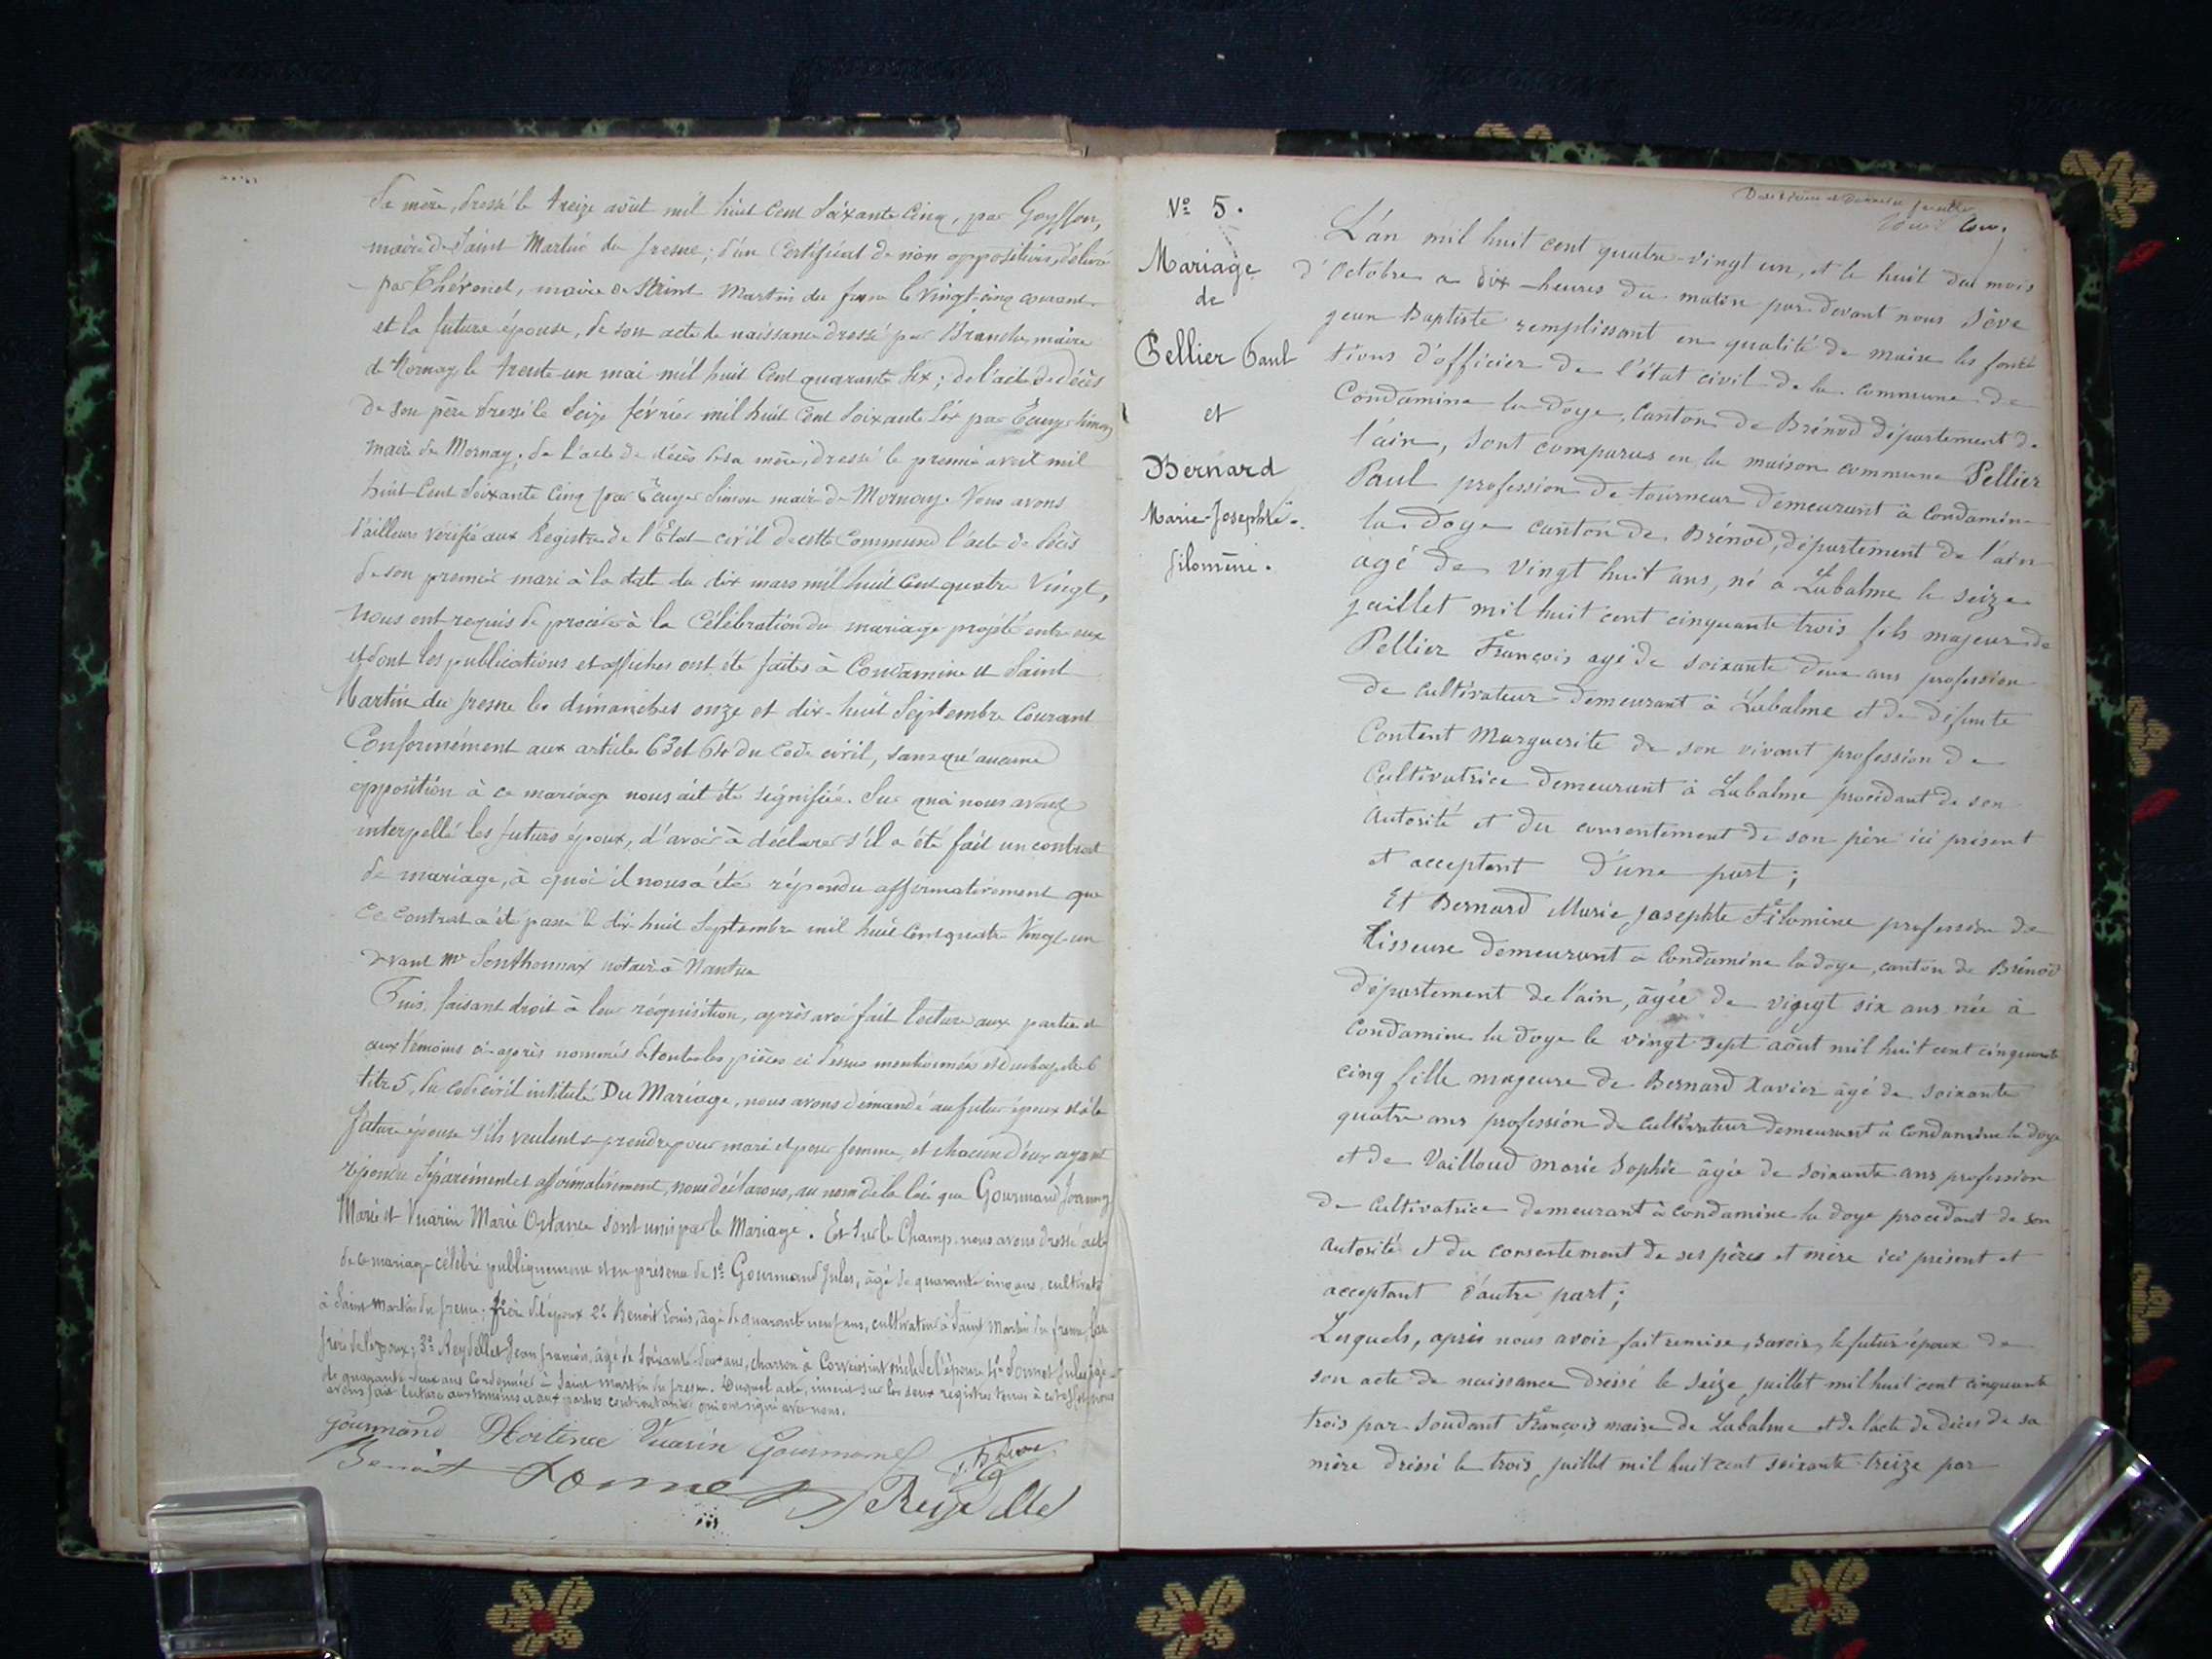 sa mère, dressé le treize août mil huit cent soixante cinq, par Goyffon,
maire de Saint Martin du fresne; d'un Certificat de non opposition, délivré
par Thévenet, maire de Saint Martin du fresne le vingt-cinq courant
et la future épouse, de son acte de naissance dressé par Branche, maire
de Mornay, le trente-un mai mil huit cent quarante six; de l'acte de décès
de son père dressé le seize février mil huit cent soixante six par Simon
maire de Mornay; de l'acte de décès de sa mère, dressé le premier avril mil
huit cent soixante cinq par Simon maire de Mornay. Nous avons
d'ailleurs vérifié aux Registres de l'Etat civil de cette commune l'acte de décès
de son premier mari à la date du dix mars mil huit cent quatre vingt,
Nous ont requis de procéder à la Célébration du mariage projeté entre eux
et dont les publications et affiches ont été faites à Condamine et Saint
Martin du fresne les dimanches onze et dix-huit Septembre Courant
Conformément aux articles 63 et 64 du Code civil, sans qu'aucune
opposition à ce mariage nous ait été signifiée. Sur quoi nous avons
interpellé les futurs époux, d'avoir à déclarer s'il a été fait un contrat
de mariage, à quoi il nous a été répondu affirmativement que
ce contrat a été passé le dix-huit Septembre mil huit cent quatre Vingt-un
devant Mr Sonthonnax notaire à Nantua
Puis, faisant droit à leur réquisition, après avoir fait lecture aux parties et
aux témoins ci-après nommés de toutes les pièces ci dessus mentionnées et du chapitre 6
titre 5, du code civil intitulé Du Mariage, nous avons demandé au futur époux et à la
future épouse s'ils veulent se prendre pour mari et pour femme, et chacun d'eux ayant
répondu séparément et affirmativement, nous déclarons, au nom de la loi que Gourmand Joanny
Marie et Vuarin Marie Ortance sont unis par le Mariage. Et sur le Champ nous avons dressé acte
de ce mariage célébré publiquement et en présence de 1º Gourmand Jules, âgé de quarante cinq ans, cultivateur
à Saint Martin du fresne, frère de l'époux 2º Benoit Louis, âgé de quarante neuf ans, cultivateur à Saint Martin du fresne,
frère de l'époux; 3º Reydellet Jean françois, âgé de soixante deux ans, charron à oncle de l'épouse 4º Jules âgé
de quarante deux ans Cordonnier à Saint Martin du fresne. Duquel acte, inscrit sur les deux registres tenus à cet effet, nous
avons fait lecture aux témoins et aux parties contractantes qui ont signé avec nous.
Gourmand Hortence Vuarin Gourmand
Benoit Reydellet
Nº 5.
Mariage
de
Pellier Paul
et
Bernard
Marie-Josephte-
filomène.
L'an mil huit cent quatre-vingt un, et le huit du mois
d'Octobre a dix-heures du matin par devant nous Sève
jean Baptiste remplissant en qualité de maire les fonc
tions d'officier de l'état civil de la commune de
Condamine la doye, Canton de Brénod département de
l'ain, sont comparus en la maison commune Pellier
Paul profession de tourneur demeurant à Condamine
la doye canton de Brénod, département de l'ain
agé de vingt huit ans, né à Labalme le seize
juillet mil huit cent cinquante trois fils majeur de
Pellier François agé de soixante deux ans profession
de cultivateur demeurant à Labalme et de défunte
Content Marguerite de son vivant profession de
Cultivatrice demeurant à Labalme procédant de son
autorité et du consentement de son père ici présent
et acceptant d'une part;
Et Bernard Marie josephte Filomine profession de
tisseuse demeurant à Condamine la doye, canton de Brénod
département de l'ain, âgée de vigigt six ans née à
Condamine la doye le vingt sept août mil huit cent cinquante
cinq fille majeure de Bernard Xavier âgé de soixante
quatre ans profession de cultivateur demeurant à Condamine la doye
et de Vailloud marie sophie âgée de soixante ans profession
de cultivatrice demeurant à Condamine la doye procédant de son
autorité et du consentement de ses pères et mère ici présent et
acceptant d'autre part;
Lesquels, après nous avoir fait remise, savoir, le futur époux de
son acte de naissance dressé le seize juillet mil huit cent cinquante
trois par Soudant François maire de Labalme et de l'acte de décès de sa
mère dréssé le trois juillet mil huit cent soixante treize par